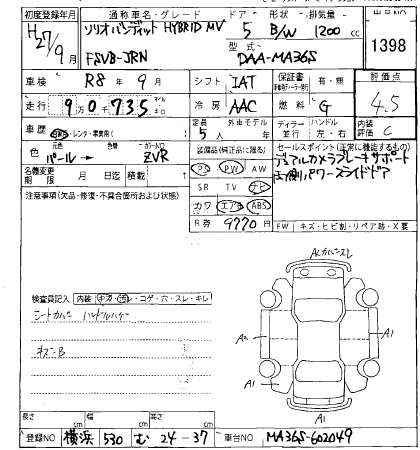 初度登録年月 通称車名・グレード ドア 形状 排気量 出品NO
H27/9月 ソリオバンディット HYBRID MV 5 B/W 1200cc
型式 1398
FSVB-JRN DAA-MA36S
車検 R8年9月 シフト IAT 保証書 有・無 評価点
走行 9万0千735 冷房 AAC 燃料 G 4.5
車歴 レンタ・業務用( ) 定員 5人 外車モデル ディーラー 並行 ハンドル 左・右 内装評価 C
色 元色 パール→ 色替 カラーNO ZVR 装備品(純正品に限る) セールスポイント(正常に機能するもの)
名義変更期限 月 日迄 積載 t PS PW AW デュアルカメラブレーキサポート
注意事項(欠品・修復・不具合箇所および状態) SR TV ナビ 両側パワースライドドア
カワ エアB ABS
R券 9770円 FW キズ・ヒビ割・リペア跡・X要
検査員記入 内装 キズ・汚レ・コゲ・穴・スレ・キレ
シートカバー
キズ:B
A1
A2
A1
A1
A1
長さ cm 幅 cm 高さ cm
登録NO 横浜 530 む 24-37 車台NO MA36S-602049